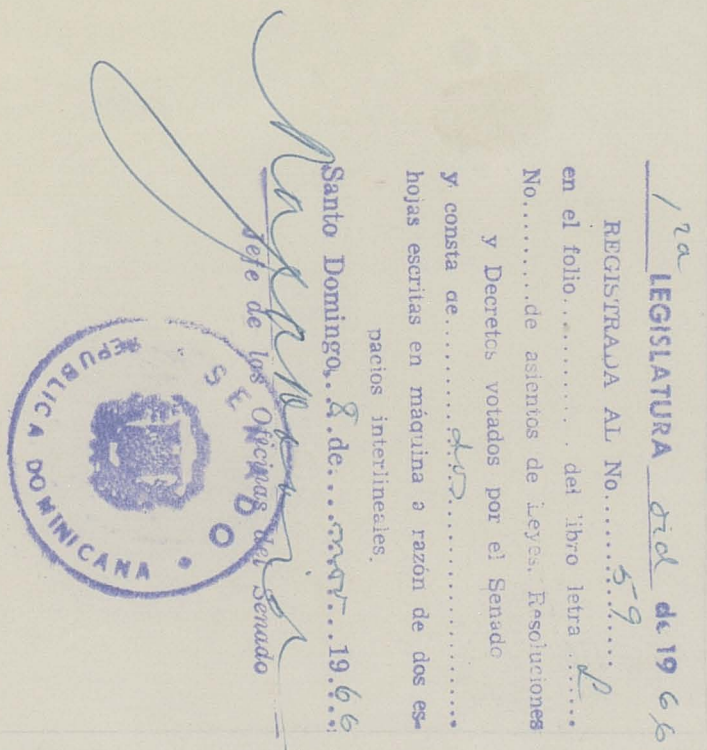 1ra LEGISLATURA ord de 1966
REGISTRADA AL No. 59
en el folio............ del libro letra L
No.........de asientos de Leyes, Resoluciones
y Decretos votados por el Senado
y consta de........dos................
hojas escritas en máquina a razón de dos es-
pacios interlineales.
Santo Domingo, 8 de nov. 1966
Jefe de las Oficinas del Senado
SENADO
REPUBLICA DOMINICANA